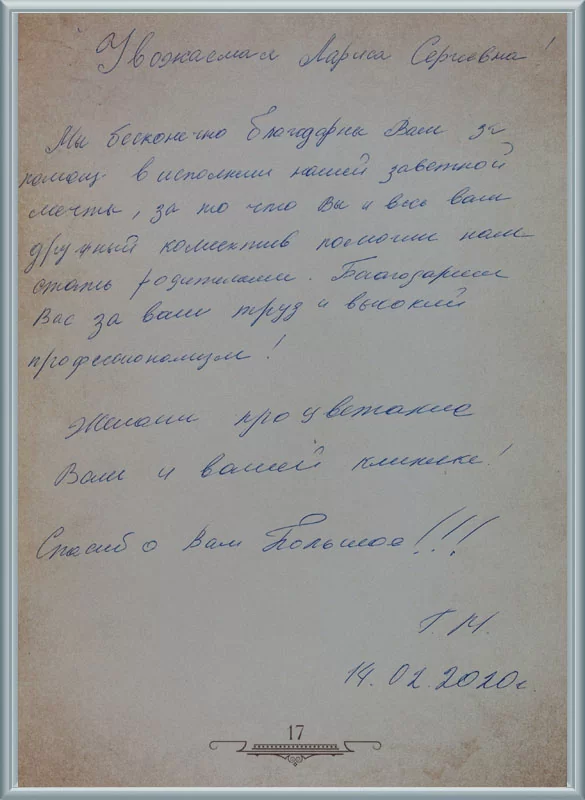 Уважаемая Лариса Сергеевна!
Мы бесконечно благодарны Вам за
помощь в исполнии нашей заветной
мечты, за то что Вы и весь ваш
дружный коллектив помогли нам
стать родителями. Благодарим
Вас за ваш труд и высокий
профессионализм!
Желаем процветание
Вам и вашей клинике!
Спасибо Вам Большое!!!!
Г. М.
14.02.2020г.
17